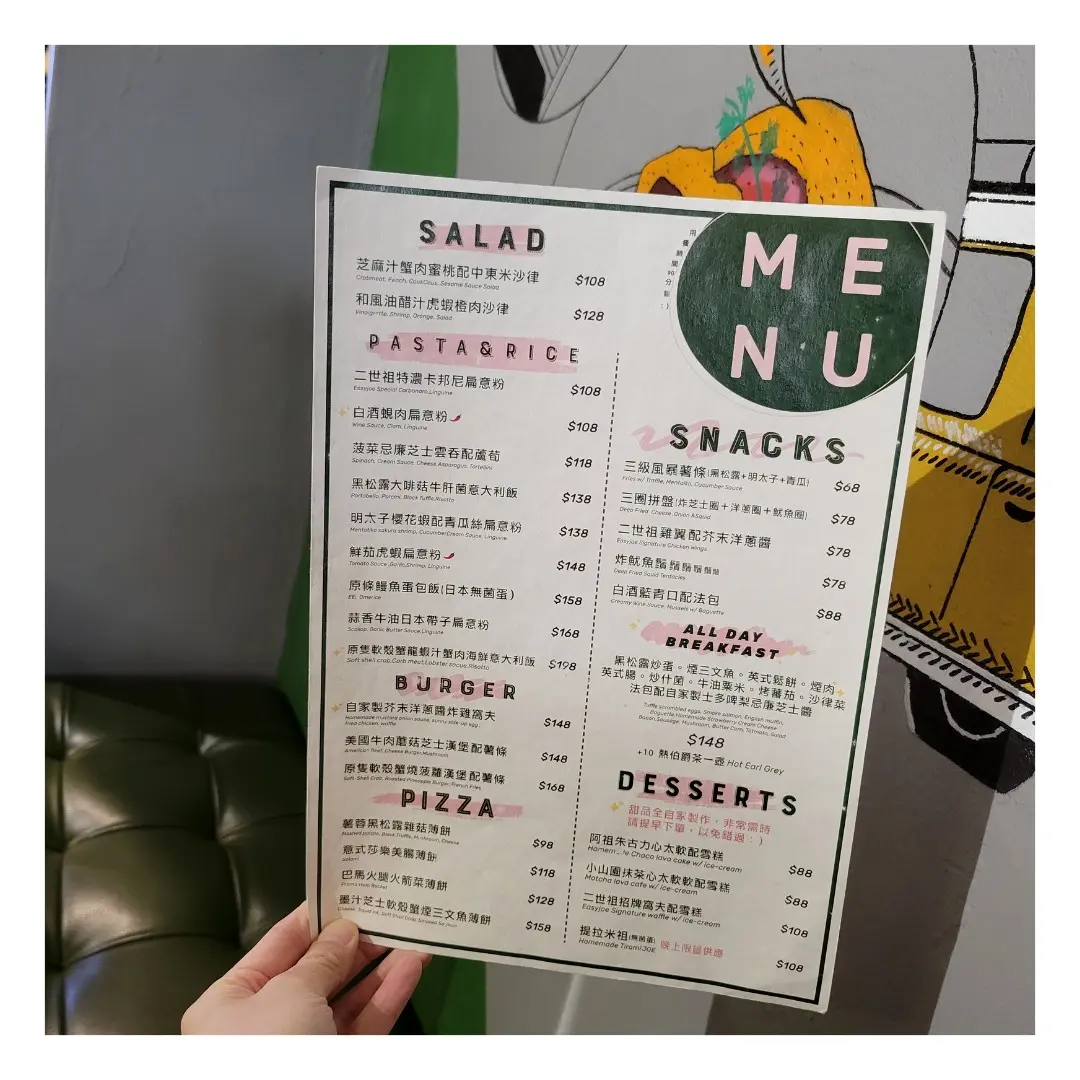 MENU
用餐時間90分鐘 :)
SALAD
芝麻汁蟹肉蜜桃配中東米沙律 $108
Crabmeat, Peach, CousCous, Sesame Sauce Salad
和風油醋汁虎蝦橙肉沙律 $128
Vinaigrette, Shrimp, Orange, Salad
PASTA&RICE
二世祖特濃卡邦尼扁意粉 $108
Easyjoe Special Carbonara,Linguine
白酒蜆肉扁意粉 $108
Wine Sauce, Clam, Linguine
菠菜忌廉芝士雲吞配蘆荀 $118
Spinach, Cream Sauce, Cheese,Asparagus, Tortellini
黑松露大啡菇牛肝菌意大利飯 $138
Portobello, Porcini, Black Tuffle,Risotto
明太子櫻花蝦配青瓜絲扁意粉 $138
Mentatiko sakura shrimp, CucumberCream Sauce, Linguine
鮮茄虎蝦扁意粉 $148
Tomato Sauce ,Garlic,Shrimp, Linguine
原條鰻魚蛋包飯(日本無菌蛋) $158
EEL Omerice
蒜香牛油日本帶子扁意粉 $168
Scallop, Garlic Butter Sauce,Linguine
原隻軟殼蟹龍蝦汁蟹肉海鮮意大利飯 $198
Soft shell crab,Carb meat,Lobster socue,Risotto
BURGER
自家製芥末洋蔥醬炸雞窩夫 $148
Homemade mustard onion sauce, sunny side up egg,
fried chicken, waffle
美國牛肉蘑菇芝士漢堡配薯條 $148
American Beef, Cheese Burger,Mushroom
原隻軟殼蟹燒菠蘿漢堡配薯條 $168
Soft-Shell Crab, Roasted Pineapple Burger, French Fries
PIZZA
薯蓉黑松露雜菇薄餅 $98
Mashed potato, Black Truffle, Mushroom, Cheese
意式莎樂美腸薄餅 $118
Salami
巴馬火腿火箭菜薄餅 $128
Parma Ham Rocket
墨汁芝士軟殼蟹煙三文魚薄餅 $158
Cheese, Squid Ink, Soft Shell Crab, Smoked Salmon
SNACKS
三級風暴薯條(黑松露+明太子+青瓜) $68
Fries w/ Truffle, Mentaiko, Cucumber Sauce
三圈拼盤(炸芝士圈+洋蔥圈+魷魚圈) $78
Deep Fried Cheese, Onion &Squid
二世祖雞翼配芥末洋蔥醬 $78
Easyjoe Signature Chicken Wings
炸魷魚鬚鬚鬚鬚鬚鬚 $78
Deep Fried Squid Tentacles
白酒藍青口配法包 $88
Creamy Wine Sauce, Mussels w/ Baguette
ALL DAY
BREAKFAST
黑松露炒蛋。煙三文魚。英式鬆餅。煙肉
英式腸。炒什菌。牛油粟米。烤蕃茄。沙律菜
法包配自家製士多啤梨忌廉芝士醬
Tuffle scrambled eggs, Smoke salmon, English muffin,
Baguette Homemade Strawberry Cream Cheese
Bacon, Sausage, Mushroom, Butter Corn, ToTmato, Salad
$148
+10 熱伯爵茶一壺 Hot Earl Grey
DESSERTS
甜品全自家製作，非常需時
請提早下單，以免錯過：)
阿祖朱古力心太軟配雪糕 $88
Choco lava cake w/ ice-cream
小山園抹茶心太軟軟配雪糕 $88
Matcha lava cafe w/ ice-cream
二世祖招牌窩夫配雪糕 $108
Easyjoe Signature waffle w/ ice-cream
提拉米祖(無菌蛋) 晚上限量供應 $108
Homemade TiramiJOE